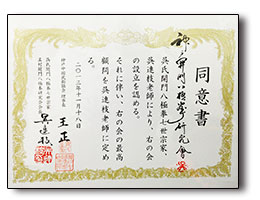 同意書
神戸開門八極拳研究會
呉氏開門八極拳七世宗家、
呉連枝老師により、右の会
の設立を認める。
それに伴い、右の会の最高
顧問を呉連枝老師に定め
る。
二〇一三年十一月十八日
神戸中国武術協会 理事長
王正
呉氏開門八極拳七世宗家
呉連枝